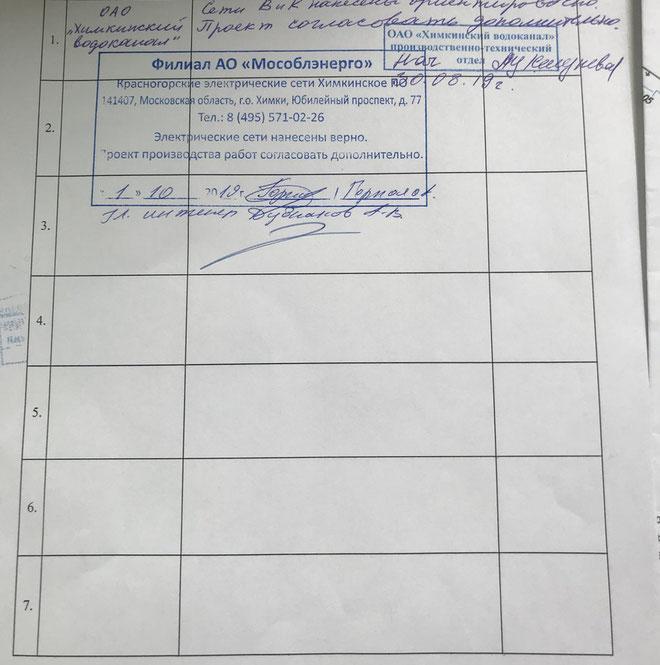 ОАО
Сети ВиК нанесены ориентировочно.
1.
„Химкинский
водоканал"
Проект согласовать дополнительно.
ОАО «Химкинский водоканал»
производственно-технический
отдел
Нач
30.08.19г.
Филиал АО «Мособлэнерго»
Красногорские электрические сети Химкинское ПО
141407, Московская область, г.о. Химки, Юбилейный проспект, д. 77
Тел.: 8 (495) 571-02-26
2.
Электрические сети нанесены верно.
Проект производства работ согласовать дополнительно.
"1" 10 2019г.
Гл. инженер
3.
4.
5.
6.
7.